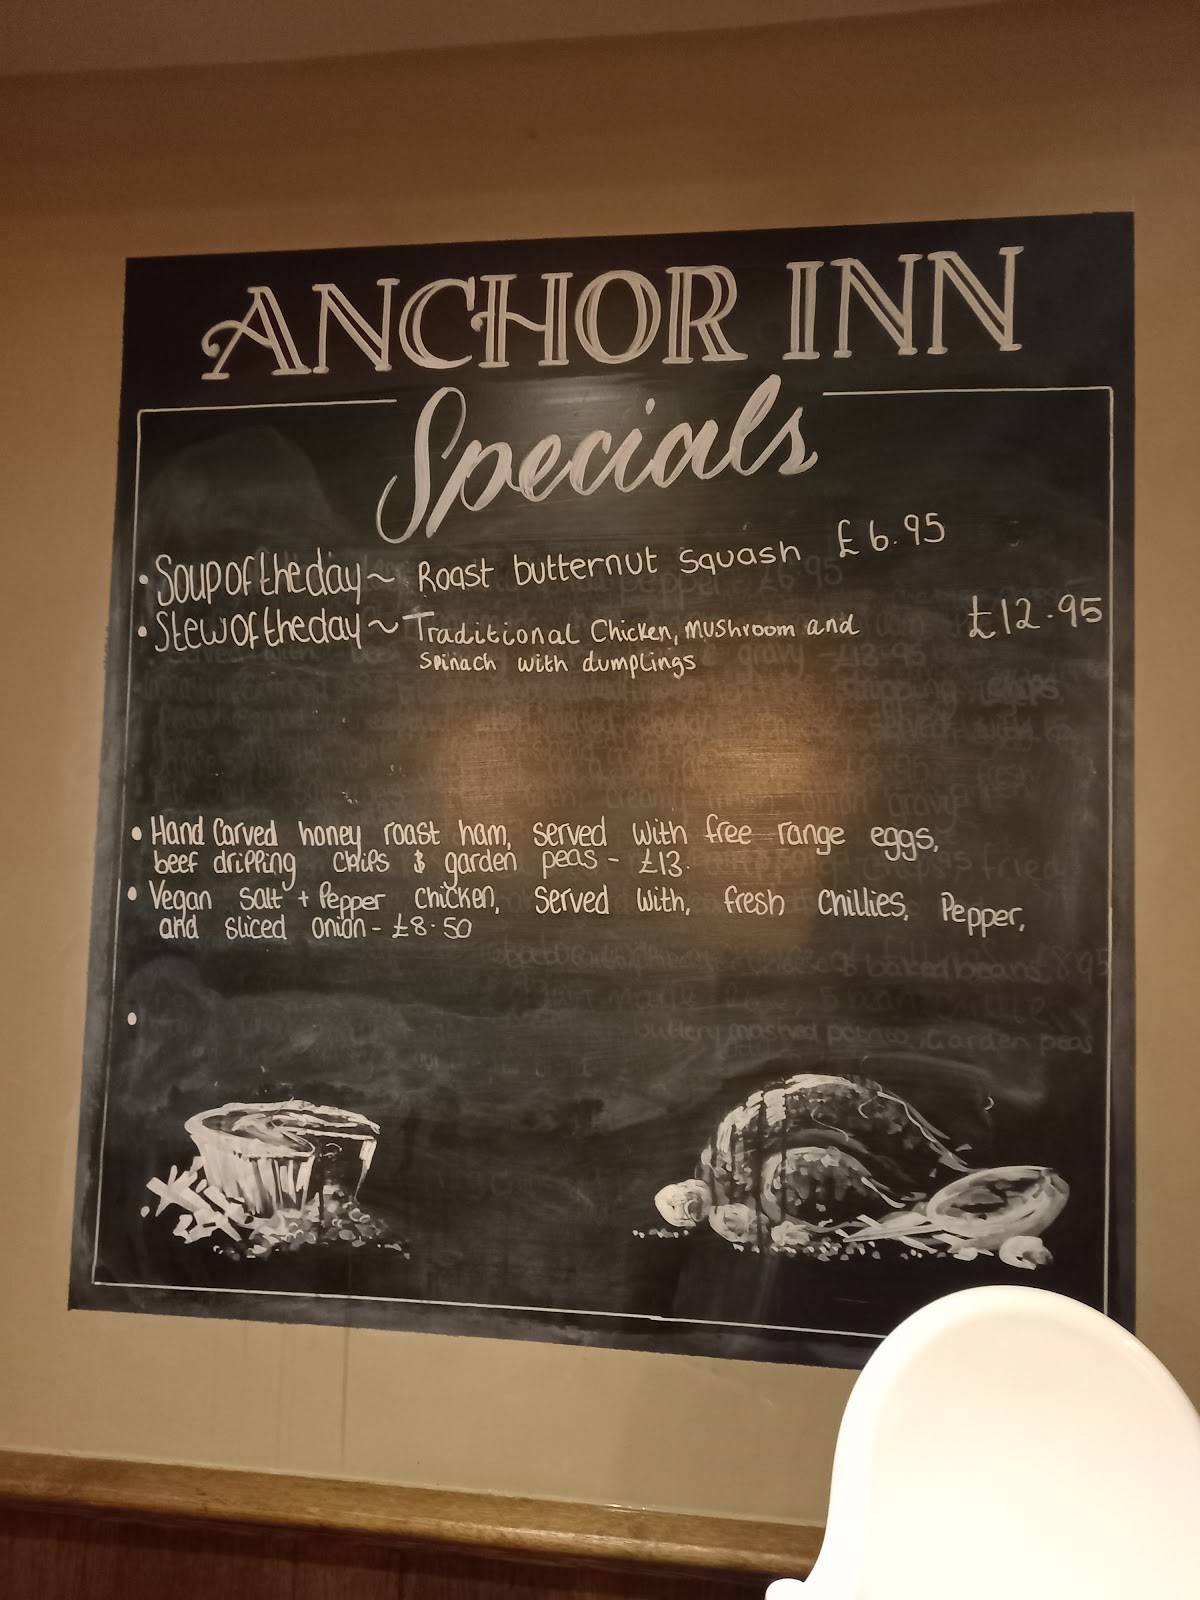 ANCHOR INN
Specials
• Soup of the day ~ Roast butternut squash £6.95
• Stew of the day ~ Traditional Chicken, Mushroom and £12.95
Spinach with dumplings
• Hand Carved honey roast ham, served with free range eggs,
beef dripping chips & garden peas - £13.
• Vegan Salt + Pepper chicken, Served with, fresh chillies, Pepper,
and sliced onion - £8.50
baked beans £8.95
buttery mashed potato, Garden peas
•